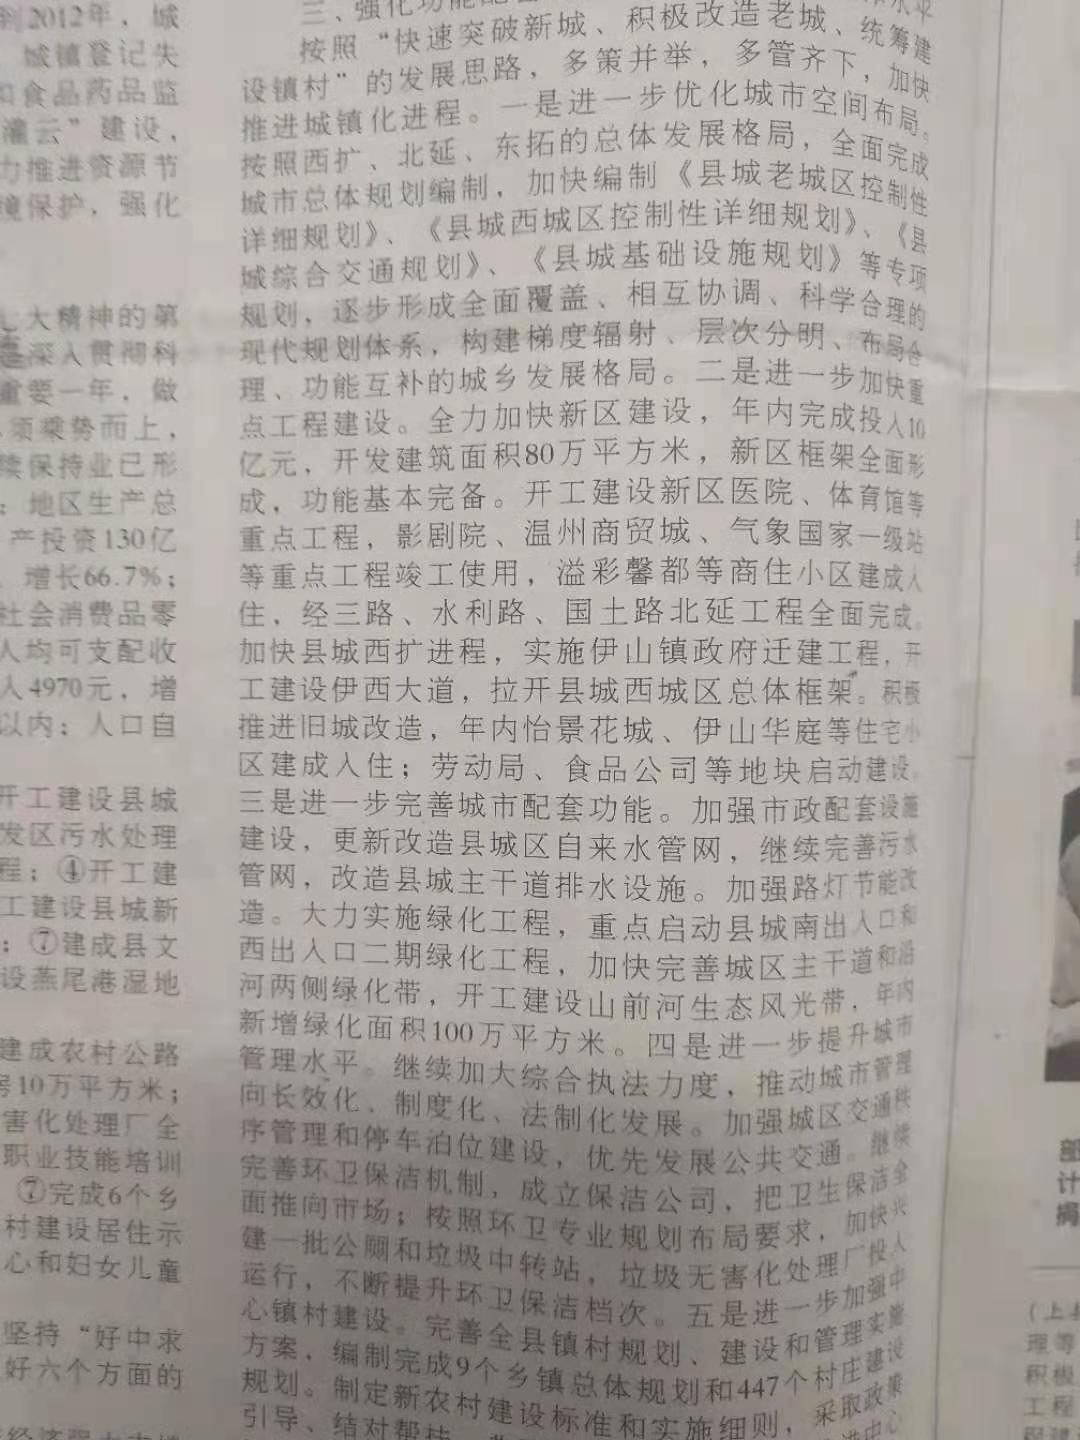 到2012年，城
城镇登记失
和食品药品监
灌云”建设，
力推进资源节
境保护，强化
七大精神的第
是深入贯彻科
重要一年，做
须乘势而上，
续保持业已形
：地区生产总
产投资130亿
增长66.7%；
社会消费品零
人均可支配收
人4970元，增
以内；人口自
开工建设县城
发区污水处理
程；④开工建
工建设县城新
；⑦建成县文
设燕尾港湿地
建成农村公路
房10万平方米；
害化处理厂全
职业技能培训
⑦完成6个乡
村建设居住示
心和妇女儿童
坚持“好中求
好六个方面的
三、强化功能配套
水平
按照“快速突破新城、积极改造老城、统筹建
设镇村”的发展思路，多策并举，多管齐下，加快
推进城镇化进程。一是进一步优化城市空间布局。
按照西扩、北延、东拓的总体发展格局，全面完成
城市总体规划编制，加快编制《县城老城区控制性
详细规划》、《县城西城区控制性详细规划》、《县
城综合交通规划》、《县城基础设施规划》等专项
规划，逐步形成全面覆盖、相互协调、科学合理的
现代规划体系，构建梯度辐射、层次分明、布局合
理、功能互补的城乡发展格局。二是进一步加快重
点工程建设。全力加快新区建设，年内完成投入10
亿元，开发建筑面积80万平方米，新区框架全面形
成，功能基本完备。开工建设新区医院、体育馆等
重点工程，影剧院、温州商贸城、气象国家一级站
等重点工程竣工使用，溢彩馨都等商住小区建成入
住，经三路、水利路、国土路北延工程全面完成。
加快县城西扩进程，实施伊山镇政府迁建工程，开
工建设伊西大道，拉开县城西城区总体框架。积极
推进旧城改造，年内怡景花城、伊山华庭等住宅小
区建成入住；劳动局、食品公司等地块启动建设。
三是进一步完善城市配套功能。加强市政配套设施
建设，更新改造县城区自来水管网，继续完善污水
管网，改造县城主干道排水设施。加强路灯节能改
造。大力实施绿化工程，重点启动县城南出入口和
西出入口二期绿化工程，加快完善城区主干道和沿
河两侧绿化带，开工建设山前河生态风光带，年内
新增绿化面积100万平方米。四是进一步提升城市
管理水平。继续加大综合执法力度，推动城市管理
向长效化、制度化、法制化发展。加强城区交通秩
序管理和停车泊位建设，优先发展公共交通。继续
完善环卫保洁机制，成立保洁公司，把卫生保洁全
面推向市场；按照环卫专业规划布局要求，加快兴
建一批公厕和垃圾中转站，垃圾无害化处理厂投入
运行，不断提升环卫保洁档次。五是进一步加强中
心镇村建设。完善全县镇村规划、建设和管理实施
方案，编制完成9个乡镇总体规划和447个村庄建设
规划。制定新农村建设标准和实施细则，采取政策
引导、结对帮扶
进中心
部
计
捐
（上
理等
积极
工程
程建